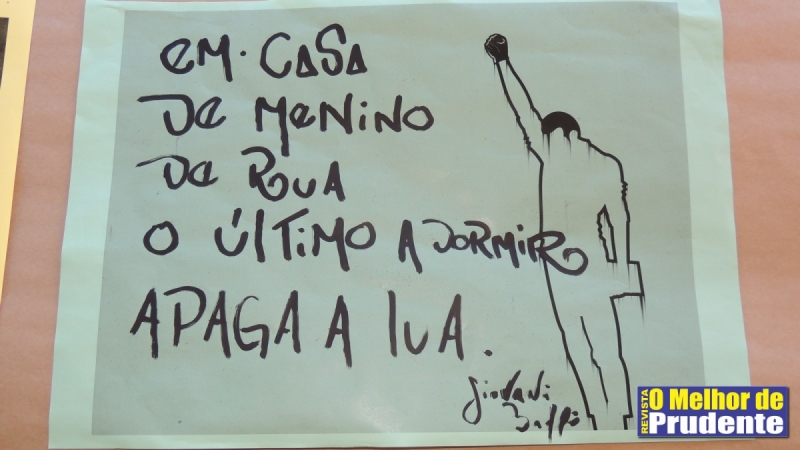 em casa
de menino
de rua
o último a dormir
apaga a lua.
Giovani
Baffô
REVISTA
O Melhor de
Prudente